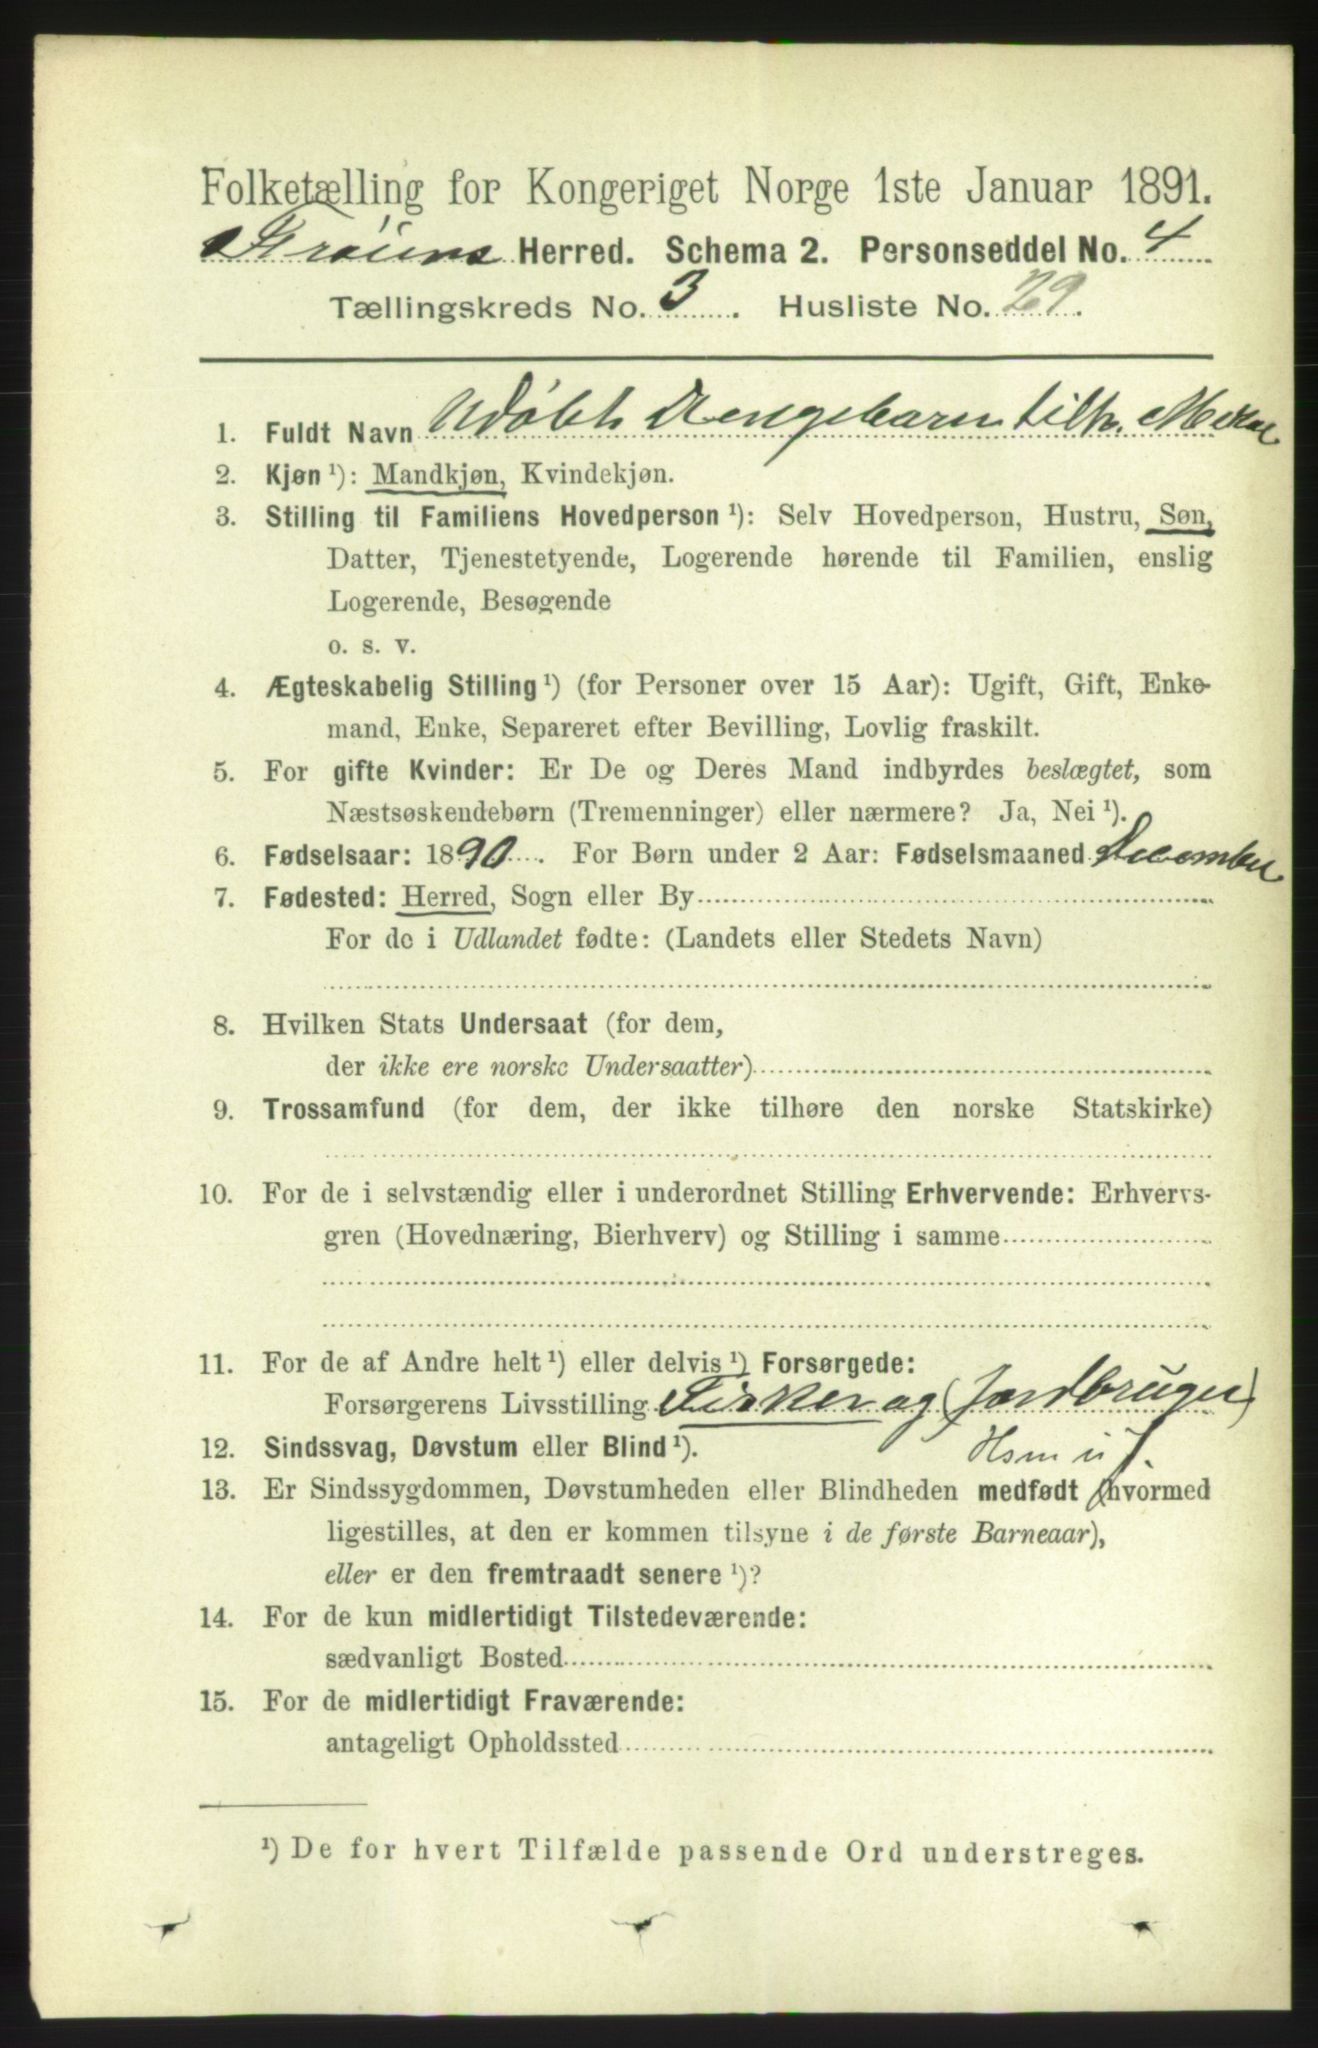 Folketælling for Kongeriget Norge 1ste Januar 1891.
Herred. Schema 2. Personseddel No. 4
Tællingskreds No. 3. Husliste No. 29.
1. Fuldt Navn Udøbt Drengebarn tilh.
2. Kjøn ¹): Mandkjøn, Kvindekjøn.
3. Stilling til Familiens Hovedperson ¹): Selv Hovedperson, Hustru, Søn,
Datter, Tjenestetyende, Logerende hørende til Familien, enslig
Logerende, Besøgende
o. s. v.
4. Ægteskabelig Stilling ¹) (for Personer over 15 Aar): Ugift, Gift, Enke-
mand, Enke, Separeret efter Bevilling, Lovlig fraskilt.
5. For gifte Kvinder: Er De og Deres Mand indbyrdes beslægtet, som
Næstsøskendebørn (Tremenninger) eller nærmere? Ja, Nei ¹).
6. Fødselsaar: 1890. For Børn under 2 Aar: Fødselsmaaned December
7. Fødested: Herred, Sogn eller By
For de i Udlandet fødte: (Landets eller Stedets Navn)
8. Hvilken Stats Undersaat (for dem,
der ikke ere norske Undersaatter)
9. Trossamfund (for dem, der ikke tilhøre den norske Statskirke)
10. For de i selvstændig eller i underordnet Stilling Erhvervende: Erhvervs-
gren (Hovednæring, Bierhverv) og Stilling i samme
11. For de af Andre helt ¹) eller delvis ¹) Forsørgede:
Forsørgerens Livsstilling Fisker og (Jordbruger)
12. Sindssvag, Døvstum eller Blind ¹).
13. Er Sindssygdommen, Døvstumheden eller Blindheden medfødt (hvormed
ligestilles, at den er kommen tilsyne i de første Barneaar),
eller er den fremtraadt senere ¹)?
14. For de kun midlertidigt Tilstedeværende:
sædvanligt Bosted
15. For de midlertidigt Fraværende:
antageligt Opholdssted
¹) De for hvert Tilfælde passende Ord understreges.